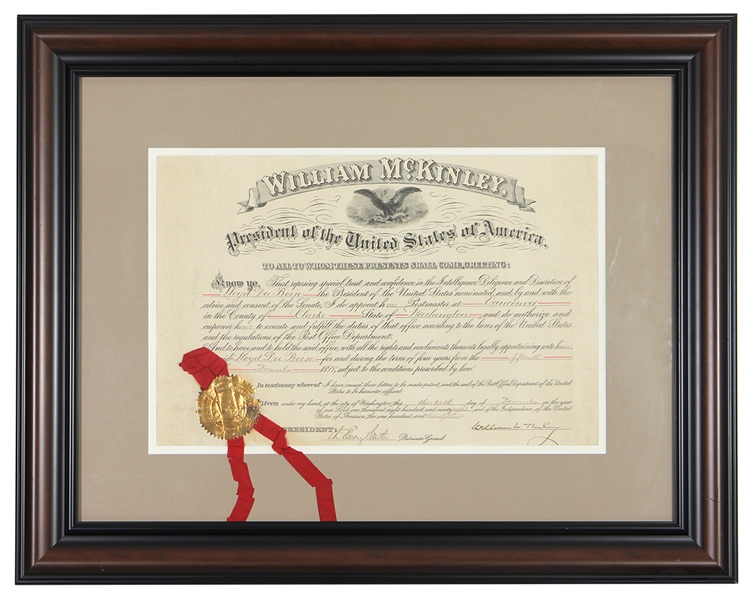 WILLIAM McKINLEY,
President of the United States of America.
TO ALL TO WHOM THESE PRESENTS SHALL COME, GREETING:
Know ye, That reposing special trust and confidence in the Intelligence Diligence and Discretion of
Lloyd Du Bois the President of the United States nominated, and, by and with the
advice and consent of the Senate, I do appoint him Postmaster at Vancouver
in the County of Clarke State of Washington and do authorize and
empower him to execute and fulfill the duties of that office according to the laws of the United States
and the regulations of the Post Office Department.
And to have and to hold the said office, with all the rights and emoluments thereunto legally appertaining unto him
Lloyd Du Bois for and during the term of four years from the fifteenth
December subject to the conditions prescribed by law.
In testimony whereof I have caused these letters to be made patent, and the seal of the Post Office Department of the United
States to be hereunto affixed.
Given under my hand, at the city of Washington, this day of December in the year
of our Lord one thousand eight hundred and ninety and of the Independence of the United
States of America, the one hundred and
PRESIDENT:
Ch Emory Smith Postmaster General. William McKinley